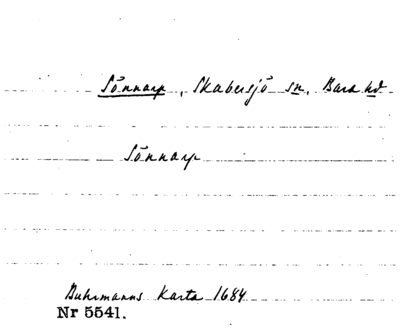 Sönnarp, Skabersjö sn, Bara hd
Sönnarp
Buhrmanns Karta 1684
Nr 5541.